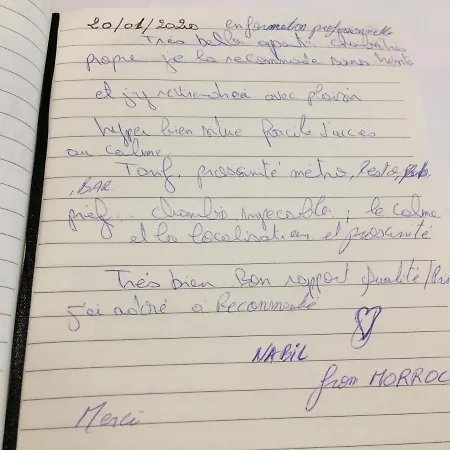 20/01/2020 en formation professionnelle
Très belle apart. chambre très
propre je la recommade sans hésité
et j'y retournerai avec plaisir
hyper bien situé facile d'acces
au calme
Tarif, proximité métro, Resto, Pub
, BAR
préf... chambre impecable, le calme
et la localisation et proximité
Très bien Bon rapport qualité/Pri
j'ai adoré a Recommandé
NABIL
from MORROC
Merci